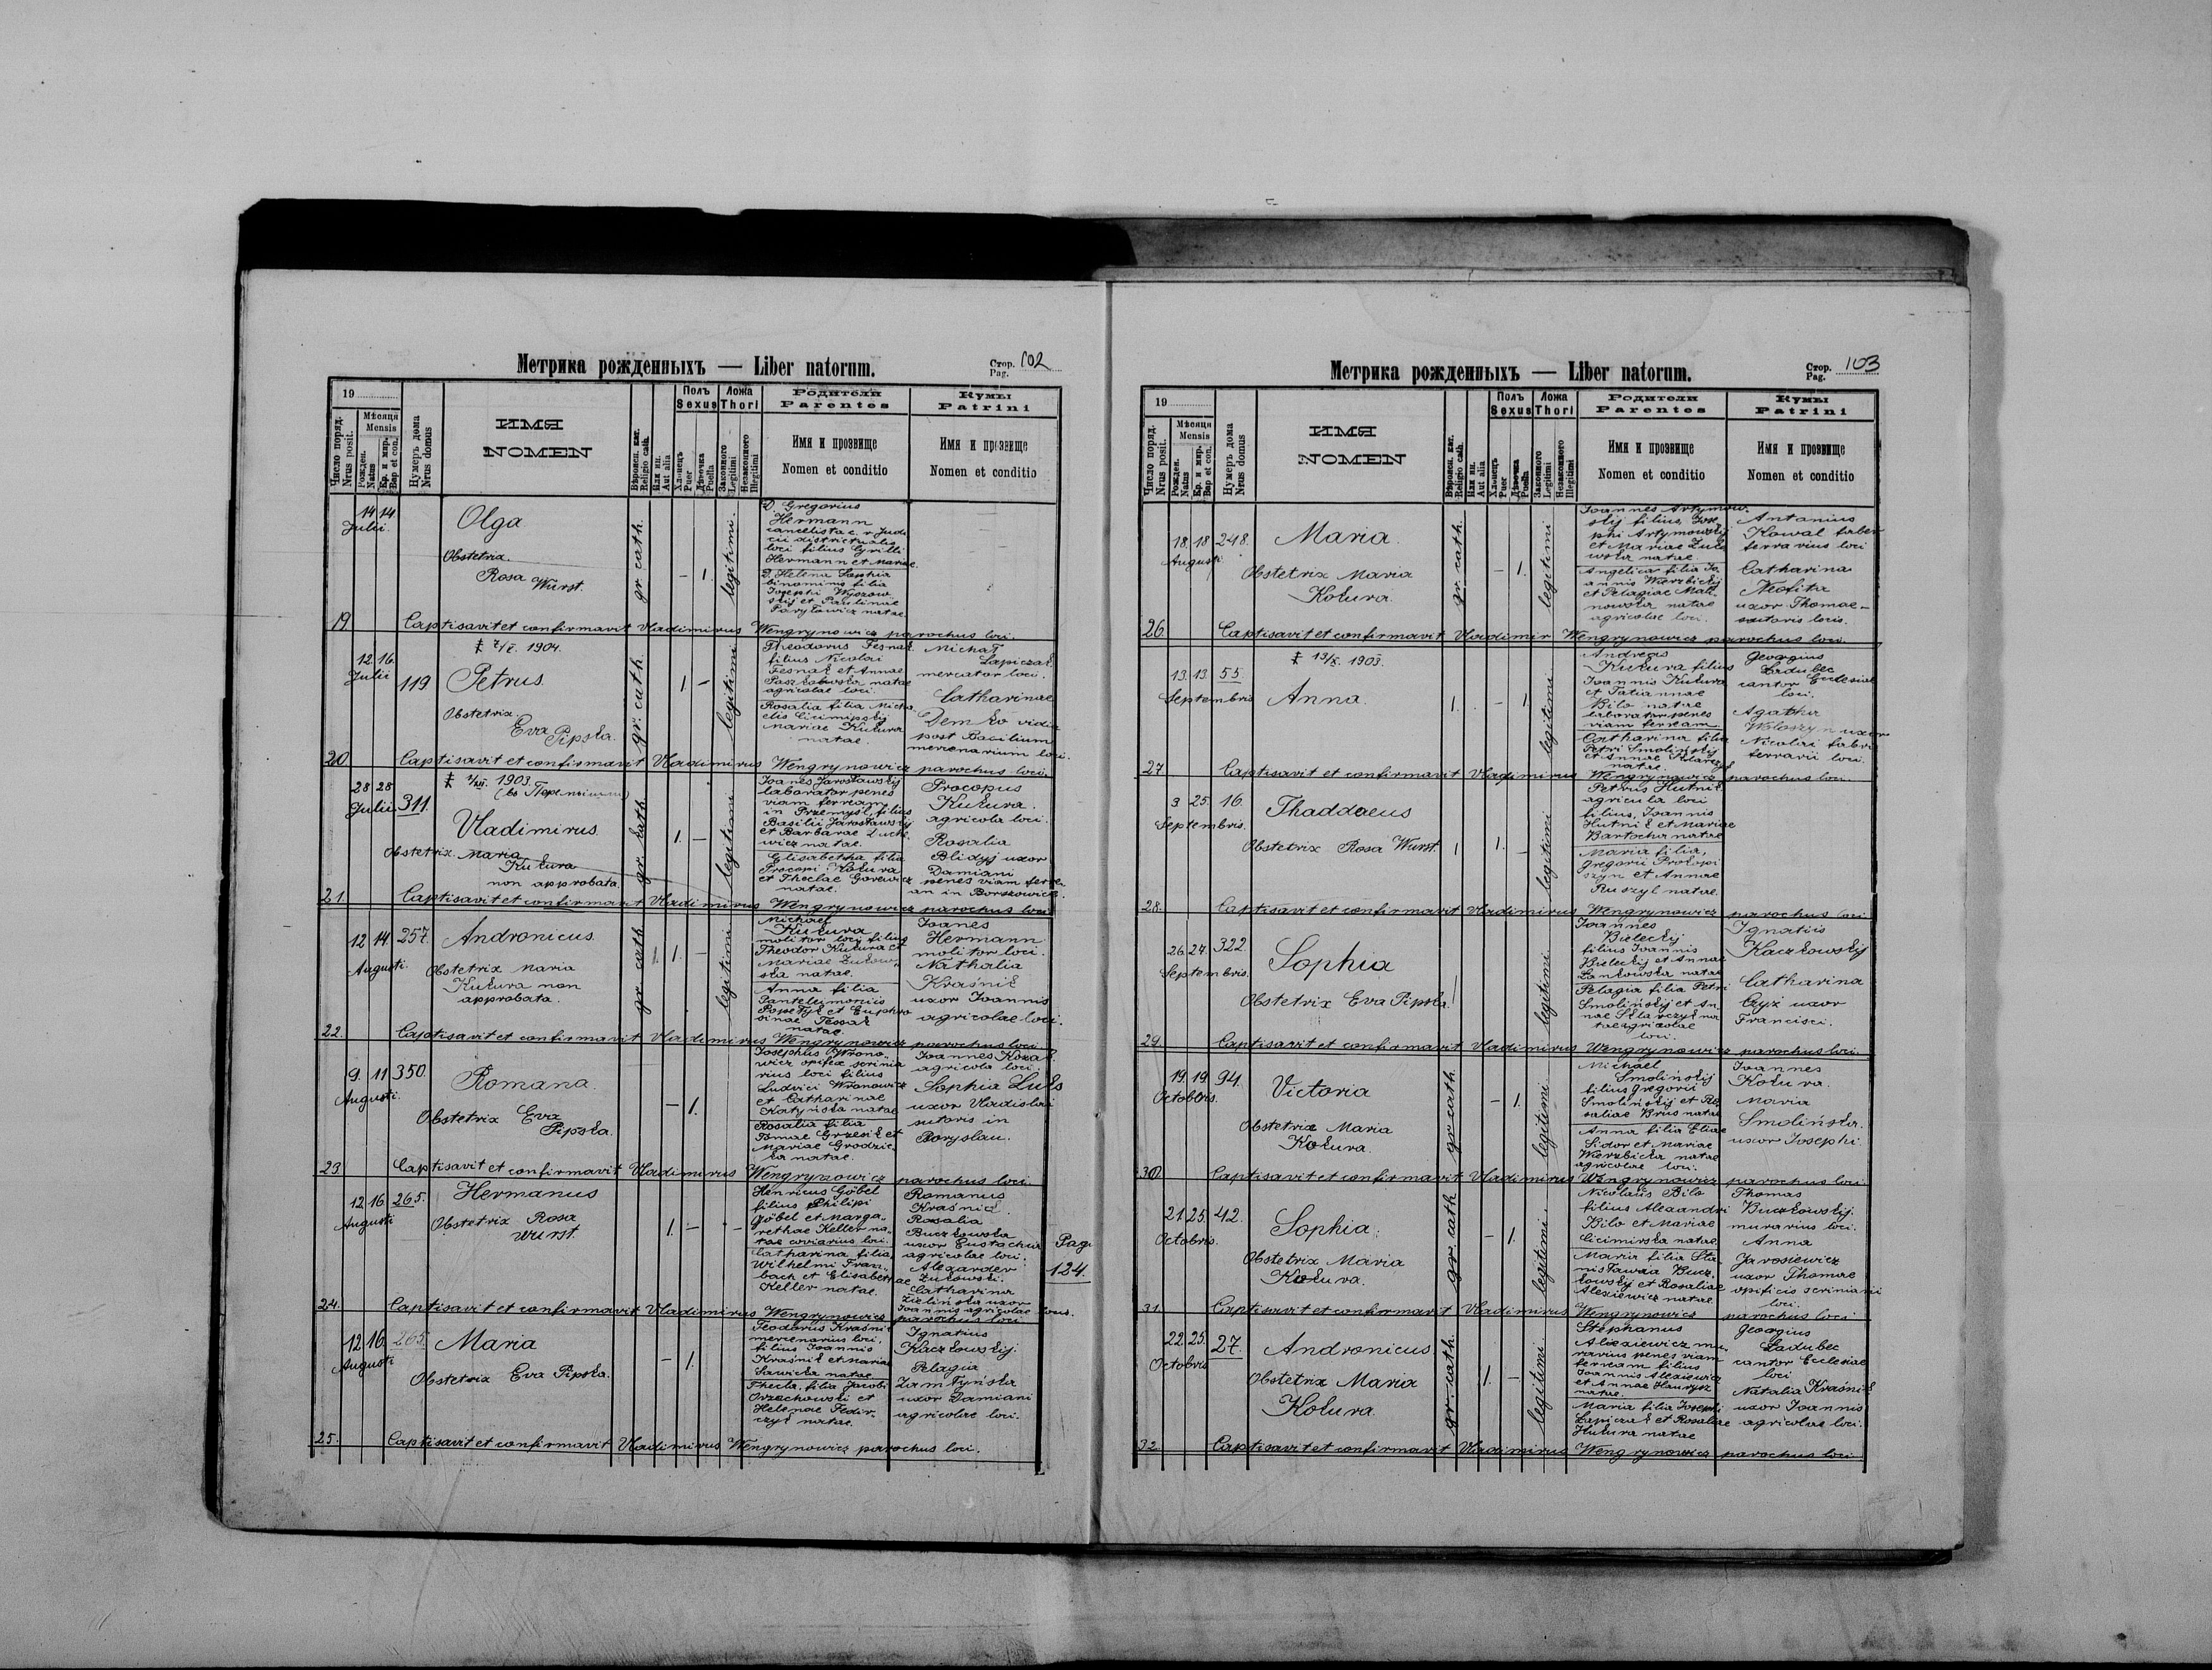 Метрика рожденныхъ — Liber natorum.
Стор. Pag. 102
19
Число поряд. Nrus posit.
Мѣсяця Mensis
Рожден. Natus
Кр. и мир. Bap et con.
Нумеръ дома Nrus domus
ИМЯ
NOMEN
Вѣроисп. кат. Religio cath.
Или ин. Aut alia
Полъ Sexus
Хлопецъ Puer
Дѣвочка Puella
Ложа Thori
Законного Legitimi
Незаконного Illegitimi
Родители
Parentes
Имя и прозвище
Nomen et conditio
Кумы
Patrini
Имя и прозвище
Nomen et conditio
14 14
Julii
Olga
Obstetrix
Rosa Wurst.
gr. cath.
– 1.
legitimi.
D. Gregorius
Hermann
cancelista c. r. Judi
cii districtualis
loci filius Cyrilli
Hermann et Mariae
D. Helena Sophia
binominis filia
Josephi
et Paulinae
natae
19 Baptisavit et confirmavit Vladimirus Wengrynowicz parochus loci.
1904.
12. 16.
Julii
119
Petrus
Obstetrix
Eva Pipska.
gr. cath.
1. –
legitimi
Theodorus Fesnak
filius Nicolai
Fesnak et Annae
Paszkowska natae
agricolae loci.
Rosalia filia Micha
elis
Mariae Kukura
natae.
Michał
Lapiczak
mercator loci.
Catharinae
Demko vidua
post Basilium
mercenarium loci.
20 Baptisavit et confirmavit Vladimirus Wengrynowicz parochus loci.
1903.
28 28
Julii
311.
Vladimirus.
Obstetrix Maria
Kukura
non approbata.
gr. cath
1. –
legitimi
Joanes Jarosławskij
laborator penes
viam ferream
in Przemysl, filius
Basilii Jarosławskij
et Barbarae
natae.
Elisabetha filia
Procopi Kokura
et Theclae
natae.
Procopus
Kukura.
agricola loci.
Rosalia
Blidyj uxor
Damiani
penes viam ferre
an in Borszowice.
21. Baptisavit et confirmavit Vladimirus Wengrynowicz parochus loci
12 14. 257.
Augusti.
Andronicus.
Obstetrix Maria
Kukura non
approbata.
gr. cath
1. 1. –
legitimi
Michael
Kukura
molitor loci filius
Theodor Kukura et
Mariae Zukow
ska natae.
Anna filia
Panteleimoniis
et Euphro
sinae
natae
Joanes
Hermann
molitor loci.
Nathalia
Kraśnik
uxor Joannis
agricolae loci.
22. Baptisavit et confirmavit Vladimirus Wengrynowicz parochus loci
9. 11 350.
Augusti.
Romana.
Obstetrix Eva
Pipska.
– 1.
Josephus Wrono
wicz opifex scrinia
rius loci filius
Ludvici Wronowicz
et Catharinae
Katyńska natae
Rosalia filia
Grzesik et
Mariae Grodzic
ka natae.
Joannes Kozak.
agricola loci.
Sophia Luks
uxor Vladislai
sutoris in
Boryslau.
23. Baptisavit et confirmavit Vladimirus Wengrynowicz parochus loci
12. 16 265.
Augusti
Hermanus
Obstetrix Rosa
Wurst.
1. – –
Henricus Göbel
filius Philipi
Göbel et Marga
rethae Keller na
tae coriarius loci.
Catharina filia
Wilhelmi Fran
bach et Elisabethae
Keller natae.
Romanus
Kraśnic.
Rosalia
Buczkowska
uxor Eustachii
agricolae loci.
Alexander
Zukowski.
Catharina
Zielińska uxor
Joannis agricolae loci.
Pag.
124.
24. Baptisavit et confirmavit Vladimirus Wengrynowicz parochus loci
12. 16. 265.
Augusti
Maria
Obstetrix Eva Pipska.
– 1.
Teodorus Kraśnik
mercenarius loci,
filius Joannis
Kraśnik et Mariae
Sawicka natae
Thecla, filia Jacobi
Orzechowski et
Helenae Fedir
czyk natae.
Ignatius
Kaczkowskij.
Pelagia
Zamtyńska
uxor Damiani
agricolae loci.
25. Baptisavit et confirmavit Vladimirus Wengrynowicz parochus loci.
Метрика рожденныхъ — Liber natorum.
Стор. Pag. 103
19
Число поряд. Nrus posit.
Мѣсяця Mensis
Рожден. Natus
Кр. и мир. Bap et con.
Нумеръ дома Nrus domus
ИМЯ
NOMEN
Вѣроисп. кат. Religio cath.
Или ин. Aut alia
Полъ Sexus
Хлопецъ Puer
Дѣвочка Puella
Ложа Thori
Законного Legitimi
Незаконного Illegitimi
Родители
Parentes
Имя и прозвище
Nomen et conditio
Кумы
Patrini
Имя и прозвище
Nomen et conditio
18. 18 248.
Augusti
Maria.
Obstetrix Maria
Kokura.
gr. cath.
– 1.
legitimi
Joannes Artymow
skij filius Jose
phi Artymowskij
et Mariae Zuko
wska natae.
Angelica filia Jo
annis Wierzbickij
et Pelagiae Mali
nowska natae
agricolae loci.
Antonius
Kowal faber
ferrarius loci
Catharina
Neofita
uxor Thomae
sutoris locis.
26. Baptisavit et confirmavit Vladimir Wengrynowicz parochus loci.
13/X. 1903.
13. 13. 55.
Septembris
Anna.
1. – 1.
legitimi
Andreas
Kukura filius
Joannis Kukura
et Tatiannae
Bilo natae
laborator penes
viam ferream
Catharina filia
Petri Smolińskij
et Annae
natae.
Georgius
Ladubec
cantor Ecclesiae
loci.
Agatha
Wołoszyn uxor
Nicolai fabri
ferrarii loci.
27 Baptisavit et confirmavit Vladimirus Wengrynowicz parochus loci.
3 25. 16.
Septembris.
Thaddaeus
Obstetrix Rosa Wurst.
1 1. –
legitimi
Petrus Hutnik
agricula loci
filius, Joannis
Hutnik et Mariae
Bartocha natae
Maria filia,
Gregorii Prokopi
szyn et Annae
Ruszyl natae.
28. Baptisavit et confirmavit Vladimirus Wengrynowicz parochus loci
26. 27. 322.
Septembris.
Sophia
Obstetrix Eva Pipska.
legitimi.
Joannes
Bieleckij
filius Joannis
Bieleckij et Annae
Lankowska natae
Pelagia filia Petri
Smolińskij et An
nae na
tae agricolae
loci.
Ignatiis
Kaczkowskij
Catharina
Czyż uxor
Francisci.
29. Baptisavit et confirmavit Vladimirus Wengrynowicz parochus loci.
19. 19. 94.
Octobris.
Victoria
Obstetrix Maria
Kokura.
gr. cath.
– 1.
legitimi.
Michael
Smolińskij
filius Gregorii
Smolińskij et Ro
saliae Brus natae
Anna filia Eliae
Sidor et Mariae
Wierzbicka natae
agricolae loci.
Joannes
Kokura.
Maria
Smolińska.
uxor Josephi.
30. Baptisavit et confirmavit Vladimirus Wengrynowicz parochus loci.
21. 25. 42.
Octobris.
Sophia.
Obstetrix Maria
Kokura.
gr. cath
– 1.
legitimi.
Nicolaus Bilo
filius Alexandri
Bilo et Mariae
Cicimirska natae.
Maria filia Sta
nisławа Bucz
kowskij et Rosaliae
Alexiewicz natae.
Thomas
Buczkowskij.
murarius loci.
Anna
Jarosiewicz
uxor Thomae
opificis scriniarii
loci.
31. Baptisavit et confirmavit Vladimirus Wengrynowicz parochus loci
22. 25. 27.
Octobris
Andronicus
Obstetrix Maria
Kokura.
gr. cath.
1. –
legitimi.
Stephanus
Alexiewicz mu
rarius penes viam
ferream filius
Joannis Alexiewicz
et Annae
natae.
Maria filia Josephi
Lapiczak et Rosaliae
Kukura natae
Georgius
Ladubec
cantor Ecclesiae
loci
Natalia Kraśnik
uxor Joannis
agricolae loci.
32. Baptisavit et confirmavit Vladimirus Wengrynowicz parochus loci.